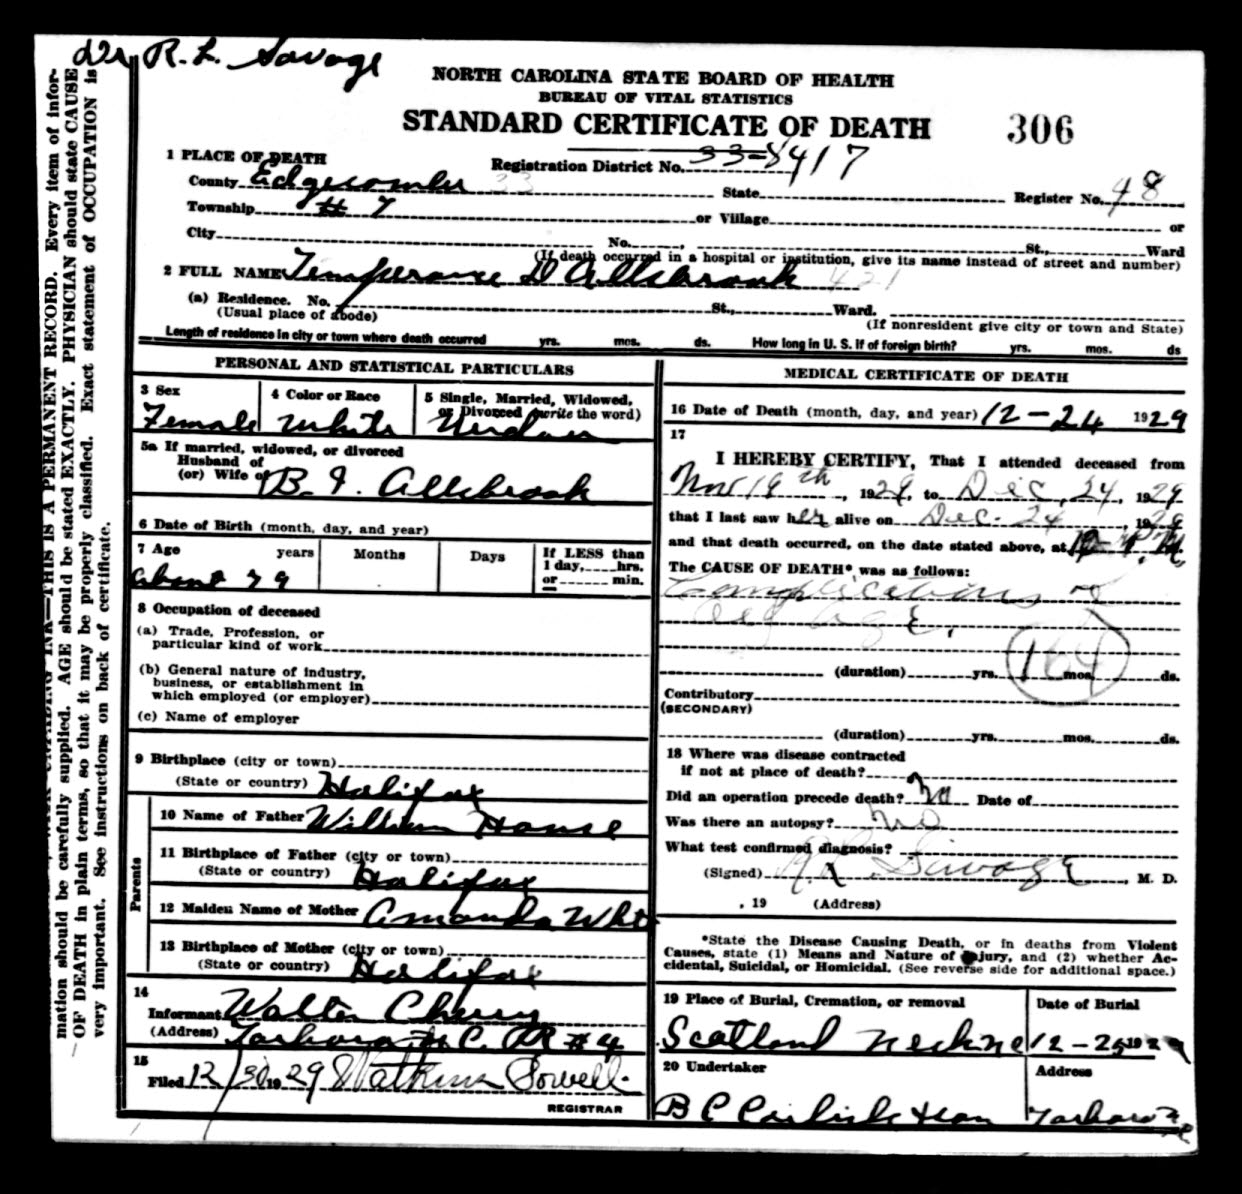 Dr R. L. Savage
NORTH CAROLINA STATE BOARD OF HEALTH
BUREAU OF VITAL STATISTICS
STANDARD CERTIFICATE OF DEATH 306
1 PLACE OF DEATH Registration District No. 33-8417
County Edgecombe 33 State Register No. 48
Township # 7 or Village or
City No. , St., Ward
(If death occurred in a hospital or institution, give its name instead of street and number)
2 FULL NAME Temperance D Allsbrook 421
(a) Residence. No. St., Ward.
(Usual place of abode) (If nonresident give city or town and State)
Length of residence in city or town where death occurred yrs. mos. ds. How long in U. S. if of foreign birth? yrs. mos. ds
PERSONAL AND STATISTICAL PARTICULARS
3 Sex 4 Color or Race 5 Single, Married, Widowed,
or Divorced (write the word)
Female White
5a If married, widowed, or divorced
Husband of
(or) Wife of B. F. Allsbrook
6 Date of Birth (month, day, and year)
7 Age years Months Days If LESS than
1 day, hrs.
or min.
About 79
8 Occupation of deceased
(a) Trade, Profession, or
particular kind of work
(b) General nature of industry,
business, or establishment in
which employed (or employer)
(c) Name of employer
9 Birthplace (city or town)
(State or country) Halifax
Parents
10 Name of Father William House
11 Birthplace of Father (city or town)
(State or country) Halifax
12 Maiden Name of Mother Amanda
13 Birthplace of Mother (city or town)
(State or country) Halifax
14
Informant Walter Cherry
(Address) Tarboro N C. R #4
15
Filed 12/30 1929
REGISTRAR
MEDICAL CERTIFICATE OF DEATH
16 Date of Death (month, day, and year) 12-24 1929
17
I HEREBY CERTIFY, That I attended deceased from
Nov 19th, 1929, to Dec, 24, 1929
that I last saw her alive on Dec. 24, 1929
and that death occurred, on the date stated above, at
The CAUSE OF DEATH*, was as follows:
Complications of
age.
(duration) yrs. mos. ds.
164
Contributory
(SECONDARY)
(duration) yrs. mos. ds.
18 Where was disease contracted
if not at place of death?
Did an operation precede death? No Date of
Was there an autopsy? No
What test confirmed diagnosis?
(Signed) R L Savage, M. D.
, 19 (Address)
*State the Disease Causing Death, or in deaths from Violent
Causes, state (1) Means and Nature of Injury, and (2) whether Ac-
cidental, Suicidal, or Homicidal. (See reverse side for additional space.)
19 Place of Burial, Cremation, or removal Date of Burial
Scotland Neck NC 12-25 1929
20 Undertaker Address
B C Carlisle Tarboro N C
mation should be carefully supplied. AGE should be stated EXACTLY. PHYSICIAN should state CAUSE
THIS IS A PERMANENT RECORD. Every item of infor-
OF DEATH in plain terms, so that it may be properly classified. Exact statement of OCCUPATION is
very important. See instructions on back of certificate.